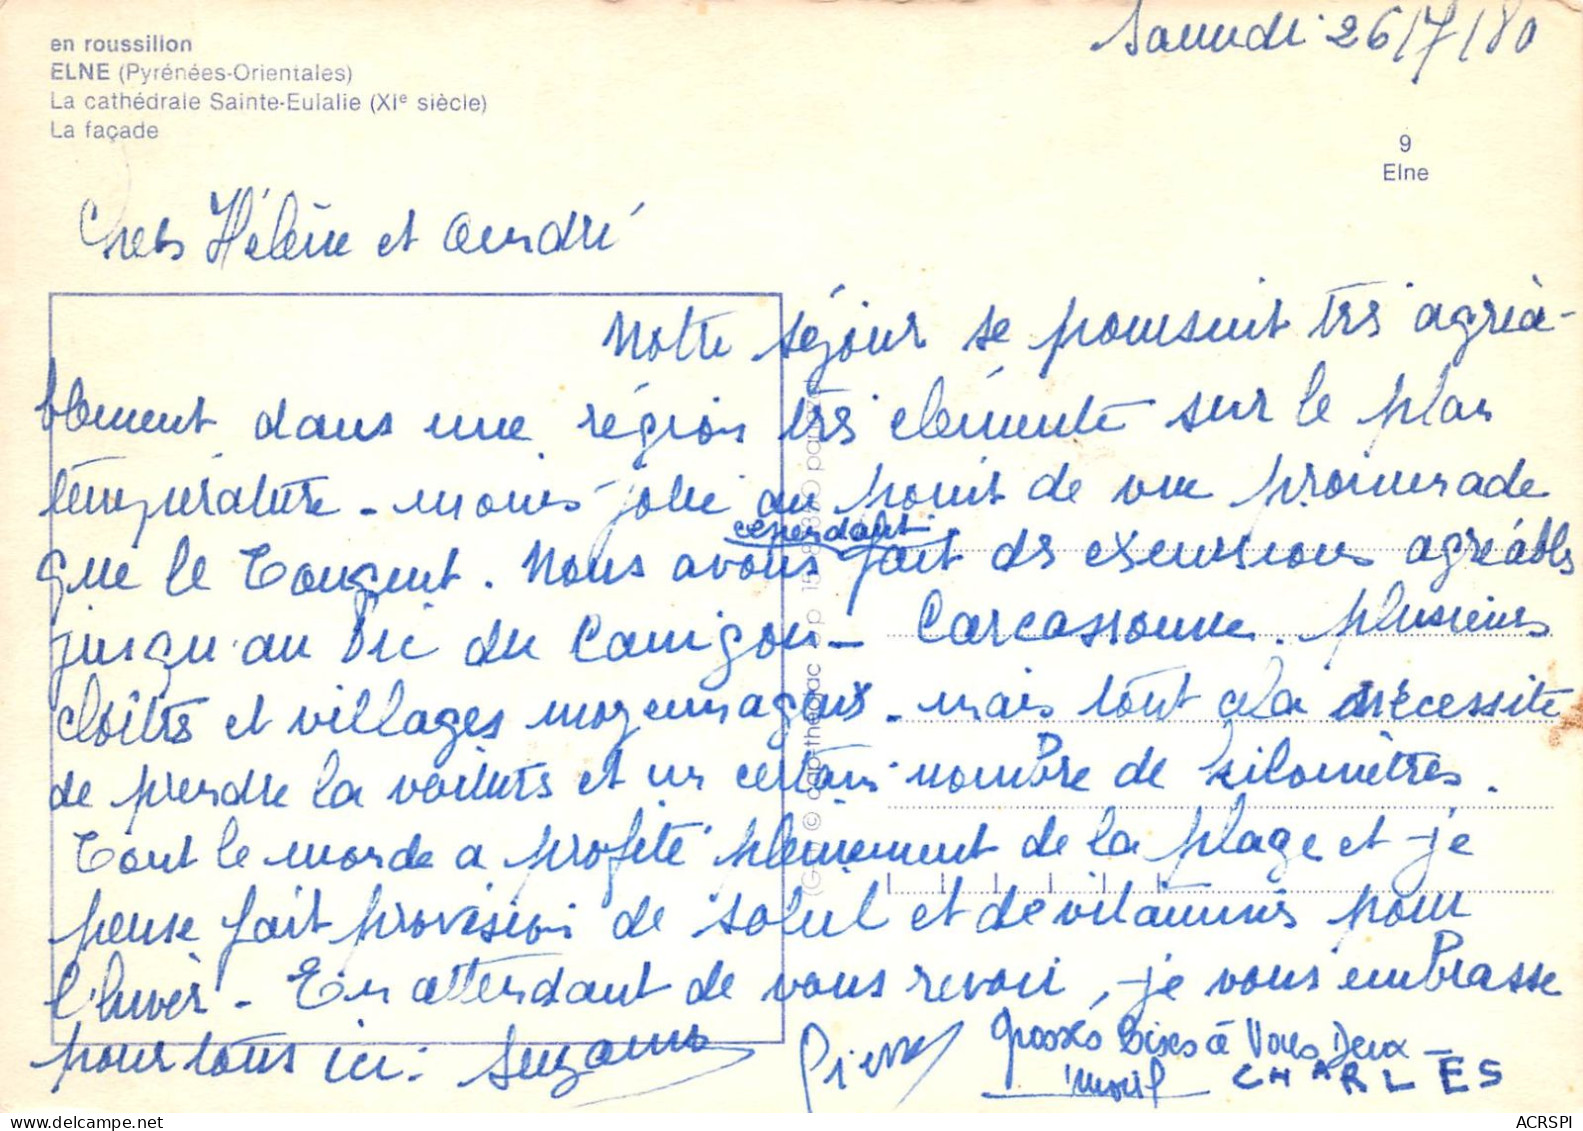 en roussillon
ELNE (Pyrénées-Orientales)
La cathédrale Sainte-Eulalie (XIe siècle)
La façade
Samedi 26/7/80
9
Elne
Chers Hélène et André
Notre séjour se poursuit très agréa-
blement dans une région très clémente sur le plan
température - moins jolie au point de vue promenade
que le Touquet. Nous avons cependant fait des excursions agréables
jusqu'au Pic du Canigou - Carcassonne. plusieurs
cloîtres et villages moyenageux. mais tout cela nécessite
de prendre la voiture et un certain nombre de kilomètres.
Tout le monde a profité pleinement de la plage et je
pense fait provision de soleil et de vitamines pour
l'hiver - En attendant de vous revoir, je vous embrasse
pour tous ici. Suzanne Pierre
Grosses Bises à Vous Deux -
CHARLES
ACRSPI